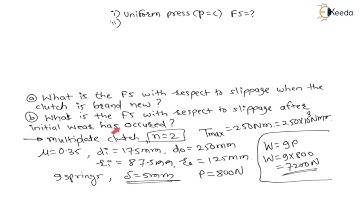 i) Uniform press (P=c) FS=?
ii)
Ekeeda
ⓐ What is the FS with respect to slippage when the
clutch is brand new ?
ⓑ What is the FS with respect to slippage after
initial wear has occured ?
→ multiplate clutch n=2 Tmax=250Nm=250x10³N-mm
μ=0.35, di=175mm, do=250mm
ri=87.5mm, ro=125mm
9springs, δ=5mm P=800N
W=9P
W=9x800
=7200N